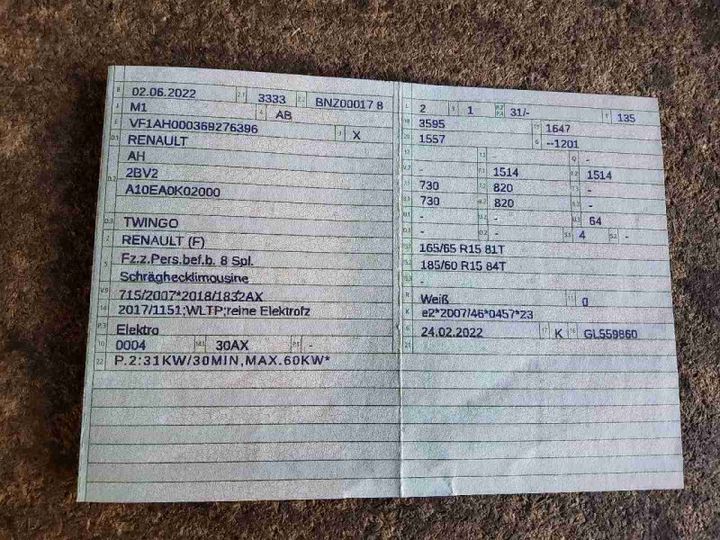 B 02.06.2022 2.1 3333 2.2 BNZ00017 8
J M1 4 AB
E VF1AH000369276396 3 X
D.1 RENAULT
AH
D.2 2BV2
A10EA0K02000
D.3 TWINGO
2 RENAULT (F)
5 Fz.z.Pers.bef.b. 8 Spl.
Schräghecklimousine
V.9 715/2007*2018/1832AX
14 2017/1151;WLTP;reine Elektrofz
P.3 Elektro
10 0004 14.1 30AX P.1 -
22 P.2:31KW/30MIN,MAX.60KW*
L 2 9 1 P.2 P.4 31/- T 135
18 3595 19 1647
20 1557 G --1201
- - -
- 1514 1514
730 820 -
730 820 -
- - 64
- - 4 -
165/65 R15 81T
185/60 R15 84T
-
R Weiß 11 0
K e2*2007/46*0457*23
6 24.02.2022 17 K 16 GL559860
21